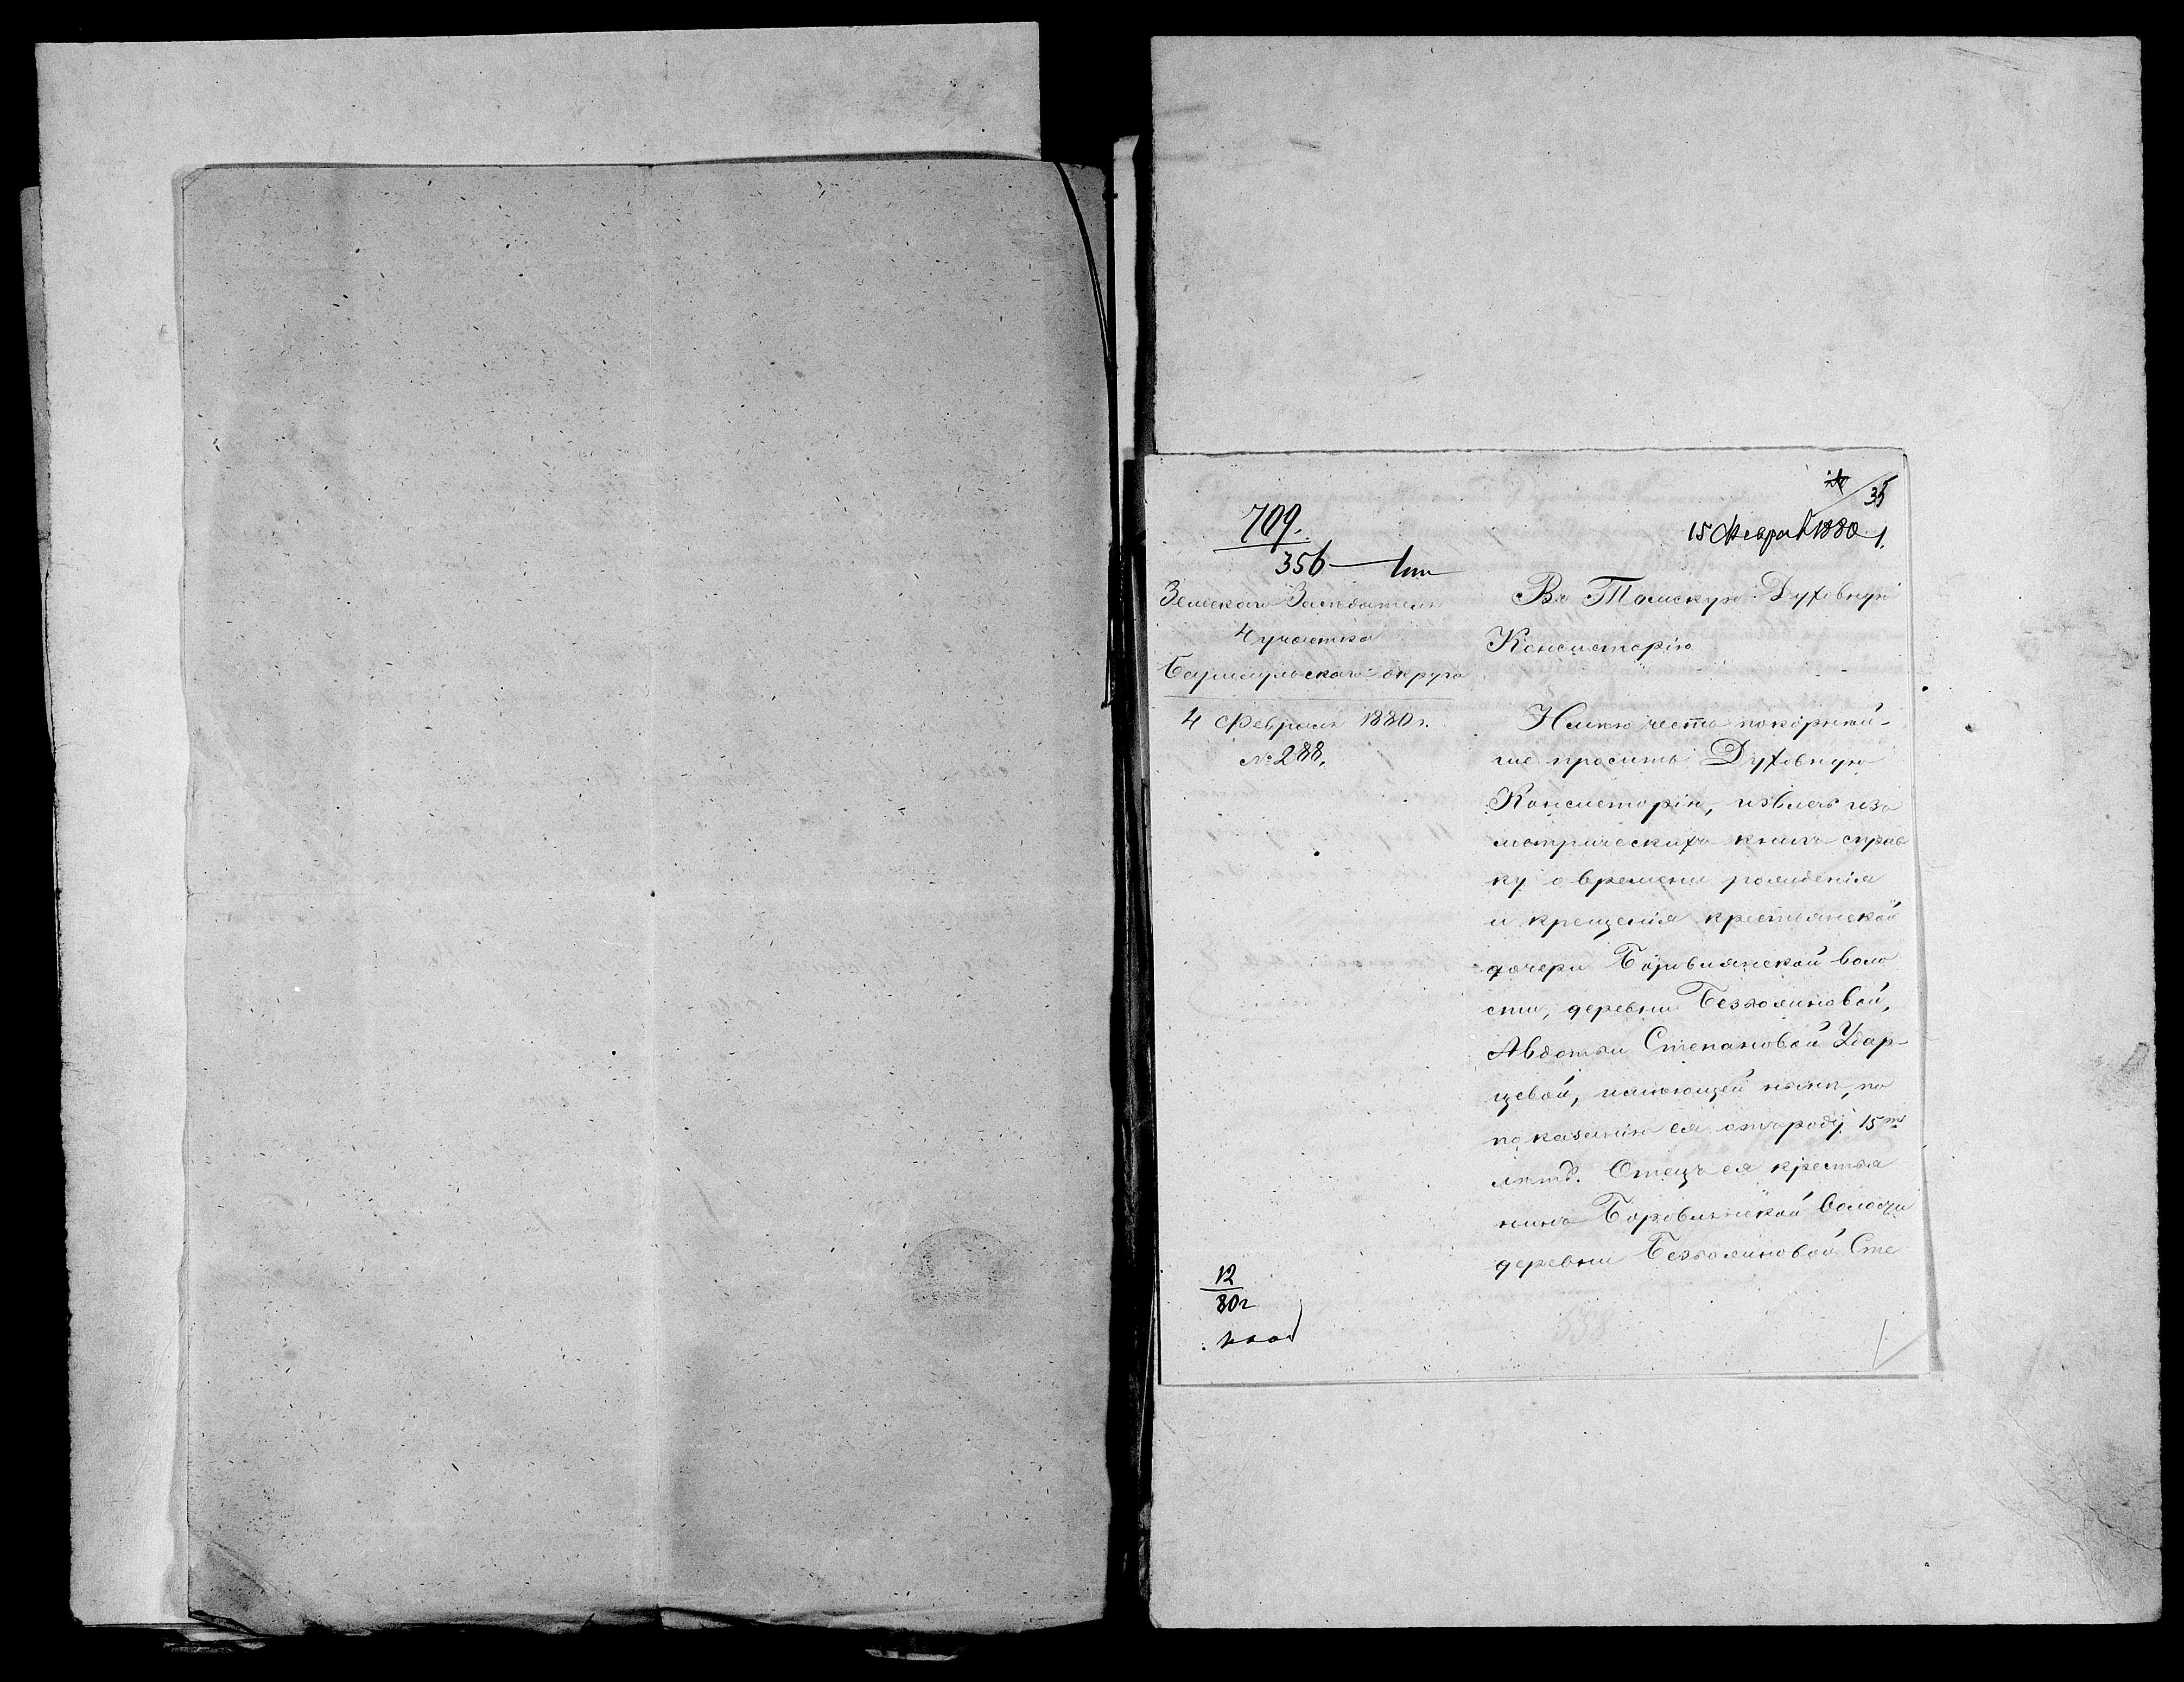 35
709.
15 Февраля 1880 г.
356
Земскаго Заседателя
4 участка
Барнаульскаго округа
4 Февраля 1880 г.
№ 288.
Въ Томскую Духовную
Консисторію
Имѣю честь покорнѣй-
ше просить Духовную
Консисторію, извлечь изъ
метрическихъ книгъ справ
ку о времени рожденія
и крещенія крестьянской
дочери Боровлянской воло
сти, деревни Безголиковой,
Авдотьи Степановой Удар-
цевой, имѣющей нынѣ, по
показанію ея отъ роду 15ть
лѣтъ. Отецъ ея крестья
нинъ Боровлянской волости
деревни Безголиковой Сте
12
80 г